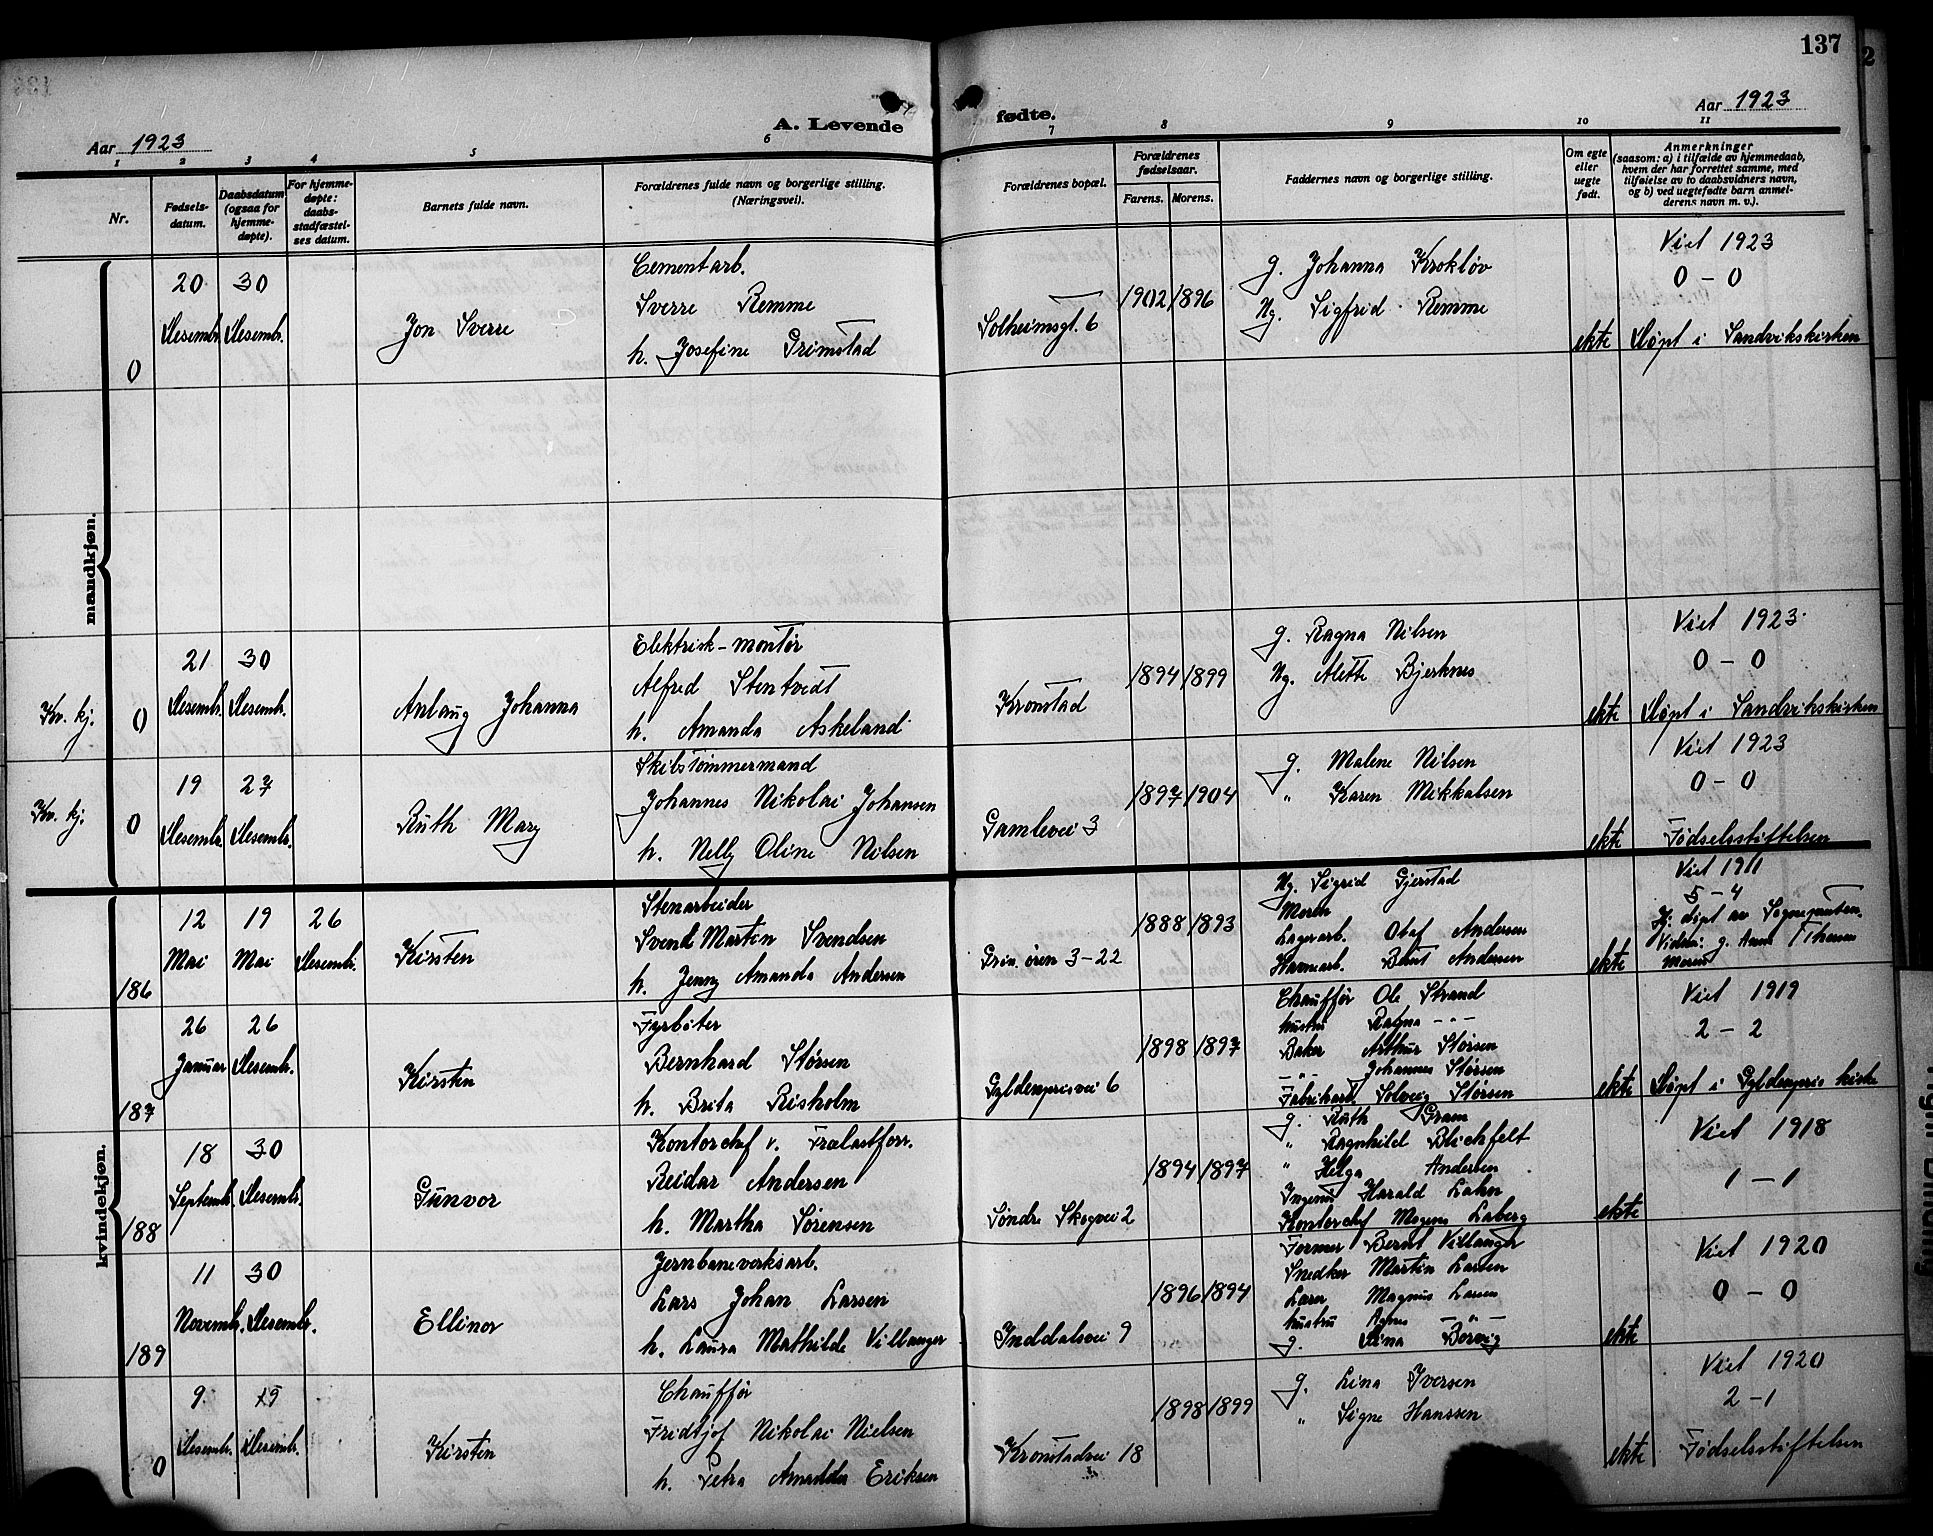 137
Aar 1923
A. Levende
fødte.
Aar 1923
1 2 3 4 5 6 7 8 9 10 11
Nr.
Fødsels-
datum.
Daabsdatum
(ogsaa for
hjemme-
døpte).
For hjemme-
døpte:
daabs-
stadfæstel-
ses datum.
Barnets fulde navn.
Forældrenes fulde navn og borgerlige stilling.
(Næringsvei).
Forældrenes bopæl.
Forældrenes
fødselsaar.
Farens. Morens.
Faddernes navn og borgerlige stilling.
Om egte
eller
uegte
født.
Anmerkninger
(saasom: a) i tilfælde av hjemmedaab,
hvem der har forrettet samme, med
tilføielse av to daabsvidners navn,
og b) ved uegtefødte barn anmel-
derens navn m. v.).
mandkjøn.
0
20 30
Desembr. Desembr.
Jon Sverre
Cementarb.
Sverre Remme
h. Josefine Grimstad
Solheimsgt. 6
1902 1896
g. Johanna Krokløv
Ug. Sigfrid Remme
ekte
Viet 1923
0 - 0
Døpt i Sandvikskirken
Kv. kj.
0
21 30
Desembr. Desembr.
Anlaug Johanna
Elektrisk-montør
Alfred Stentvedt
h. Amanda Askeland
Kronstad
1894 1899
g. Ragna Nilsen
Ug. Alette Bjerknes
ekte
Viet 1923
0 - 0
Døpt i Sandvikskirken
Kv. kj.
0
19 27
Desembr. Desembr.
Ruth Mary
Skibstømmermand
Johannes Nikolai Johansen
h. Nelly Oline Nilsen
Gamlevei 3
1897 1904
g. Malene Nilsen
" Karen Mikkalsen
ekte
Viet 1923
0 - 0
Fødselsstiftelsen
kvindekjøn.
186
12 19 26
Mai Mai Desembr.
Kirsten
Stenarbeider
Svend Martin Svendsen
h. Jenny Amanda Andersen
Grønøren 3-22
1888 1893
Ug. Sigrid Gjerstad
Moren
Lagerarb. Olaf Andersen
Havnarb. Bernt Andersen
ekte
Viet 1911
5 - 4
Hj. døpt av Sognepresten.
Vidner: g. Anna Thomsen
Moren
187
26 26
Januar Desembr.
Kirsten
Fyrbøter
Bernhard Størsen
h. Brita Risholm
Gyldenprisvei 6
1898 1897
Chauffør Ole Strand
hustru Ragna -"-
Baker Arthur Størsen
-"- Johannes Størsen
Fabrikarb. Solveig Størsen
ekte
Viet 1919
2 - 2
Døpt i Gyldenpris kirke
188
18 30
Septembr. Desembr.
Gunvor
Kontorchef v. Trælastforr.
Reidar Andersen
h. Martha Sørensen
Søndre Skogvei 2
1894 1897
g. Ruth Gram
" Ragnhild Blichfelt
" Helga Andersen
Ingeniør Harald Lahn
Kontorchef Mogens Laberg
ekte
Viet 1918
1 - 1
189
11 30
Novembr. Desembr.
Ellinor
Jernbaneverksarb.
Lars Johan Larsen
h. Laura Mathilde Villanger
Inddalsvei 9
1896 1894
Former Bernt Villanger
Snedker Martin Larsen
Lærer Magnus Larsen
hustru Agnes -"-
g. Lina Borvig
ekte
Viet 1920
0 - 0
0
9. 15
Desembr. Desembr.
Kirsten
Chauffør
Fridtjof Nikolai Nielsen
h. Petra Amadda Eriksen
Kronstadvei 18
1898 1899
g. Lina Iversen
" Signe Hanssen
ekte
Viet 1920
2 - 1
Fødselsstiftelsen